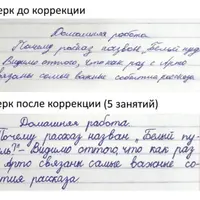 ерк до коррекции
Домашняя работа.
Почему рассказ назван „Белый
Видимо оттого, что как раз с Арто
связаны самые важные события рассказа.
ерк после коррекции (5 занятий)
Домашняя работа.
Почему рассказ назван „Белый пу-
ль?"– Видимо оттого, что как раз
Арто связаны самые важные со-
тия рассказа.